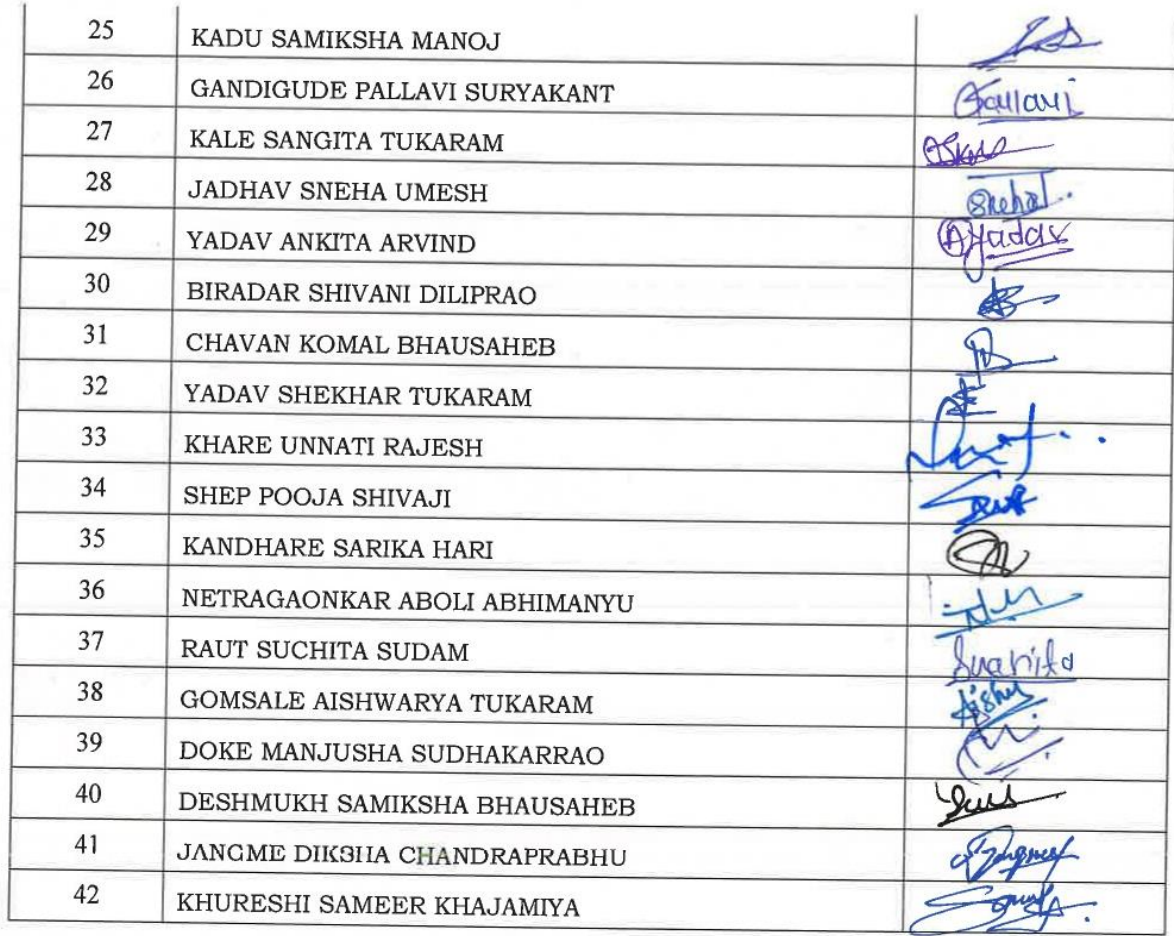 25 KADU SAMIKSHA MANOJ
26 GANDIGUDE PALLAVI SURYAKANT Pallavi
27 KALE SANGITA TUKARAM
28 JADHAV SNEHA UMESH Snehal.
29 YADAV ANKITA ARVIND AYadav
30 BIRADAR SHIVANI DILIPRAO
31 CHAVAN KOMAL BHAUSAHEB
32 YADAV SHEKHAR TUKARAM
33 KHARE UNNATI RAJESH
34 SHEP POOJA SHIVAJI
35 KANDHARE SARIKA HARI
36 NETRAGAONKAR ABOLI ABHIMANYU
37 RAUT SUCHITA SUDAM Suchita
38 GOMSALE AISHWARYA TUKARAM Aishu
39 DOKE MANJUSHA SUDHAKARRAO
40 DESHMUKH SAMIKSHA BHAUSAHEB
41 JANGME DIKSHA CHANDRAPRABHU
42 KHURESHI SAMEER KHAJAMIYA